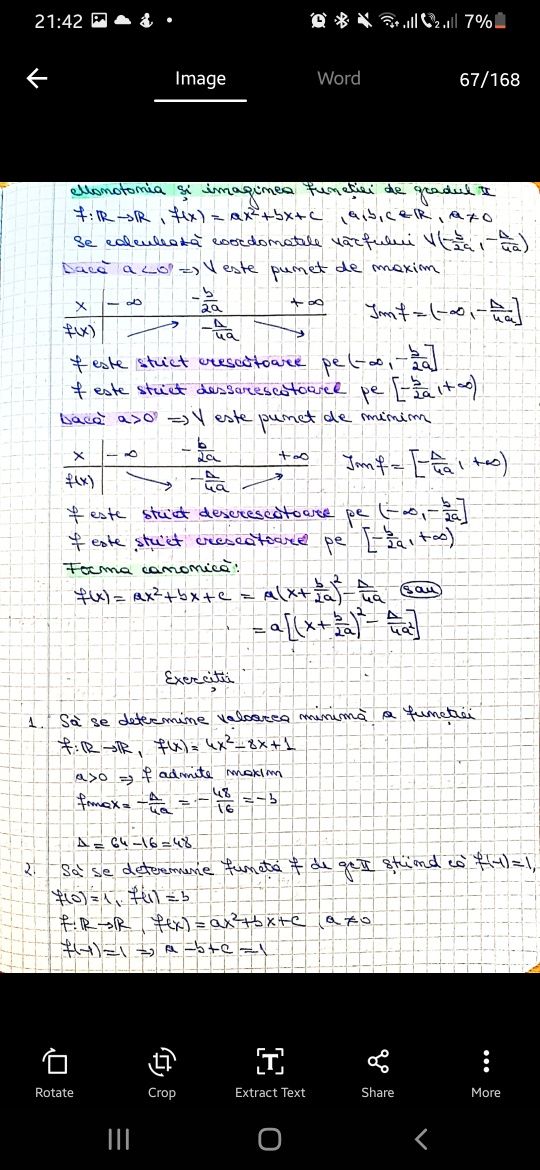 21:42 7%
Image Word 67/168
Monotonia și imaginea funcției de gradul II
f:ℝ→ℝ, f(x) = ax²+bx+c , a,b,c∈ℝ, a≠0
Se calculează coordonatele vârfului V(-b/2a, -Δ/4a)
Dacă a<0 => V este punct de maxim
x | -∞ -b/2a +∞
f(x) | ↗ -Δ/4a ↘ Imf = (-∞, -Δ/4a]
f este strict crescătoare pe (-∞, -b/2a]
f este strict desscrescătoare pe [-b/2a, +∞)
Dacă a>0 => V este punct de minim
x | -∞ -b/2a +∞
f(x) | ↘ -Δ/4a ↗ Imf = [-Δ/4a, +∞)
f este strict descrescătoare pe (-∞, -b/2a]
f este strict crescătoare pe [-b/2a, +∞)
Forma canonică:
f(x) = ax²+bx+c = a(x+b/2a)² - Δ/4a sau
= a[(x+b/2a)² - Δ/4a²]
Exerciții
1. Să se determine valoarea minimă a funcției
f:ℝ→ℝ, f(x) = 4x²-8x+1
a>0 => f admite maxim
fmax = -Δ/4a = -48/16 = -3
Δ = 64-16=48
2. Să se determine funcția f de gr II știind că f(-1)=1,
f(0)=1, f(1)=3
f:ℝ→ℝ, f(x) = ax²+bx+c , a≠0
f(-1)=1 => a-b+c=1
Rotate Crop Extract Text Share More